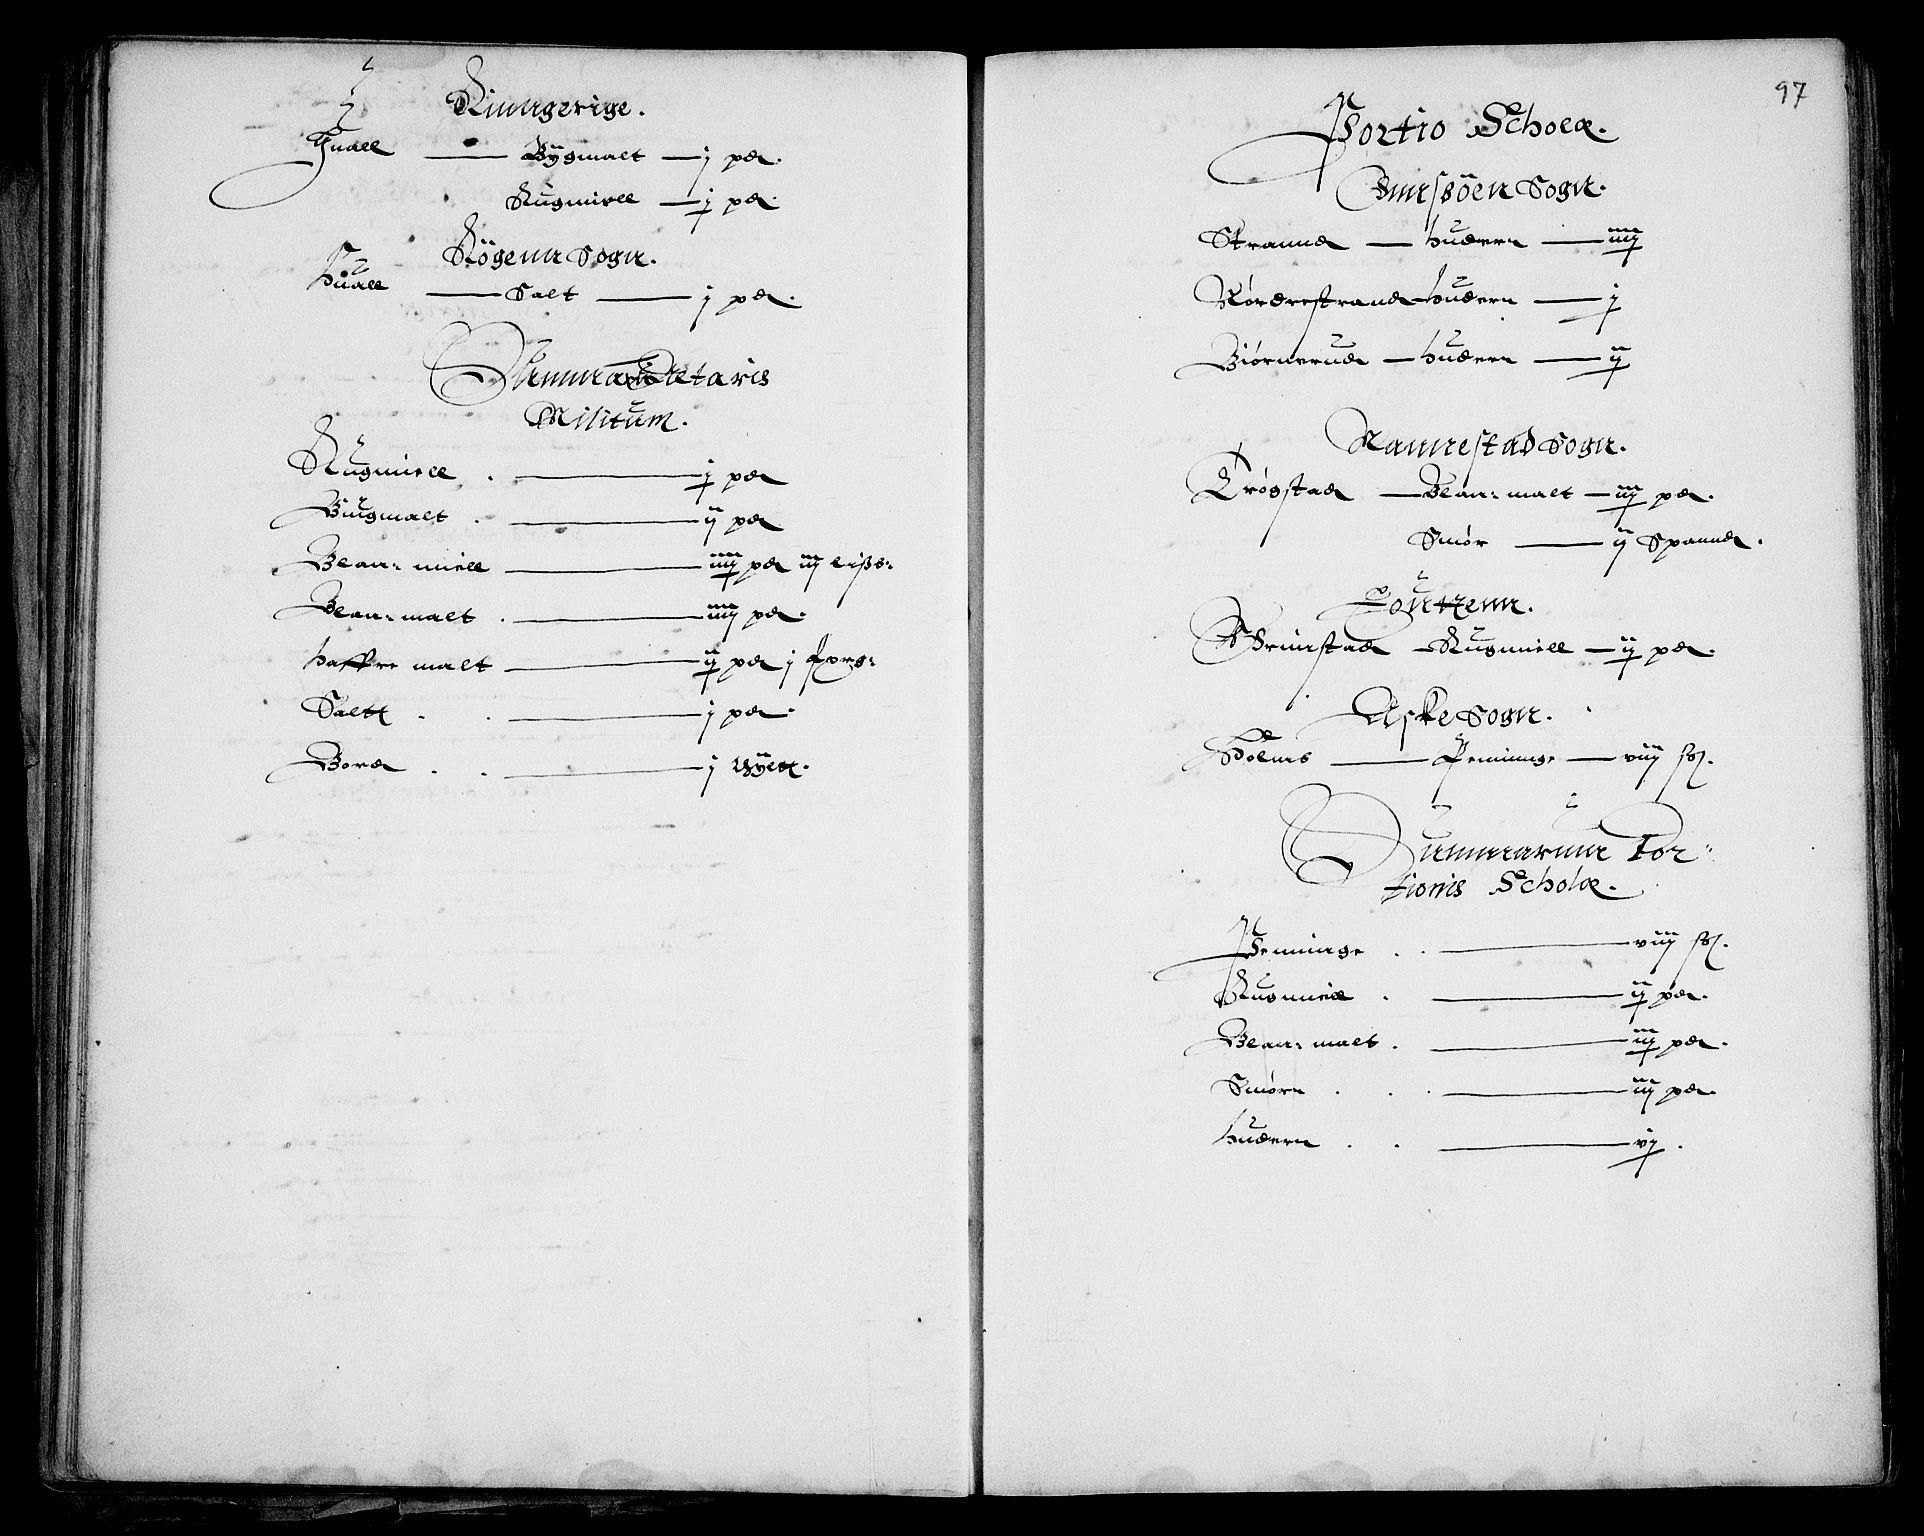 Ringerige.
Huall — Bÿgmalt — j pd.
Rugmiell — j pd.
Rögenn Sogn.
Huall — Salt — j pd.
Summa
Militum.
Rugmiell . — j pd
Biugmalt . — ij pd
Blan: miell — iiij pd iij lispd:
Blan: malt . — iiij pd.
Haffre malt — ij pd j
Saltt . . — j pd.
Bord . . — j
97
Portio Scholæ.
Sogn.
Strannd — Huderr — iiij
Nordrestrand Huderr — j
Biörnerud — Huderr — ij
Nannestad Sogn.
Trögstad — Blan: malt — iij pd.
Smör — ij Spannd.
Grimstad — Rugmiell — ij pd.
Aske Sogn.
Holms — Peninnge — viij ß.
Summarum Por-
tionis Scholæ.
Penninge . . — viij ß.
Rugmiell . — ij pd.
Blan: malt . — iij pd.
Smörr . . . — iij pd.
Huderr . . — vij .